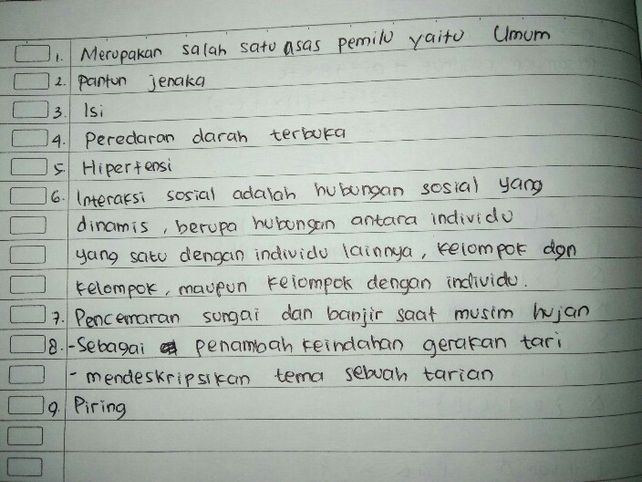 1. Merupakan salah satu asas pemilu yaitu Umum
2. Pantun jenaka
3. Isi
4. Peredaran darah terbuka
5. Hipertensi
6. Interaksi sosial adalah hubungan sosial yang
dinamis, berupa hubungan antara individu
yang satu dengan individu lainnya, kelompok dgn
kelompok, maupun kelompok dengan individu.
7. Pencemaran sungai dan banjir saat musim hujan
8. - Sebagai penambah keindahan gerakan tari
- mendeskripsikan tema sebuah tarian
9. Piring